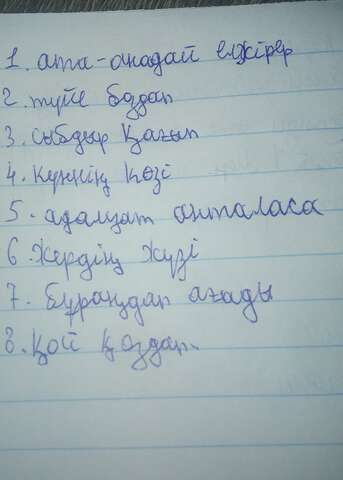 1. ата-анадай елжірер
2. түйе боздап
3. сыбдыр қағып
4. күннің көзі
5. адамзат анталаса
6. Жердің жүзі
7. бұраңдап ағады
8. Қой қоздап.